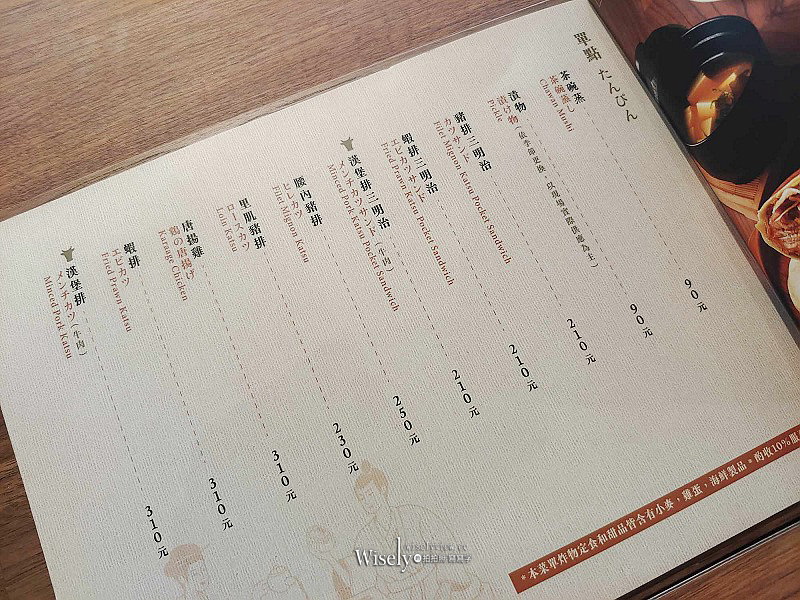 單點 たんぴん
茶碗蒸
茶碗蒸し
Chawan Mushi
90元
漬物
漬け物（依季節更換，以現場實際供應為主）
Pickle
90元
豬排三明治
カツサンド
Filet Mignon Katsu Pocket Sandwich
210元
蝦排三明治
エビカツサンド
Fried Prawn Katsu Pocket Sandwich
210元
漢堡排三明治
メンチカツサンド（牛肉）
Minced Pork Katsu Pocket Sandwich
210元
腰內豬排
ヒレカツ
Filet Mignon Katsu
250元
里肌豬排
ロースカツ
Loin Katsu
230元
唐揚雞
鶏の唐揚げ
Karaage Chicken
310元
蝦排
エビカツ
Fried Prawn Katsu
310元
漢堡排
メンチカツ（牛肉）
Minced Pork Katsu
310元
*本菜單炸物定食和甜品皆含有小麥，雞蛋，海鮮製品。酌收10%服
Wisely